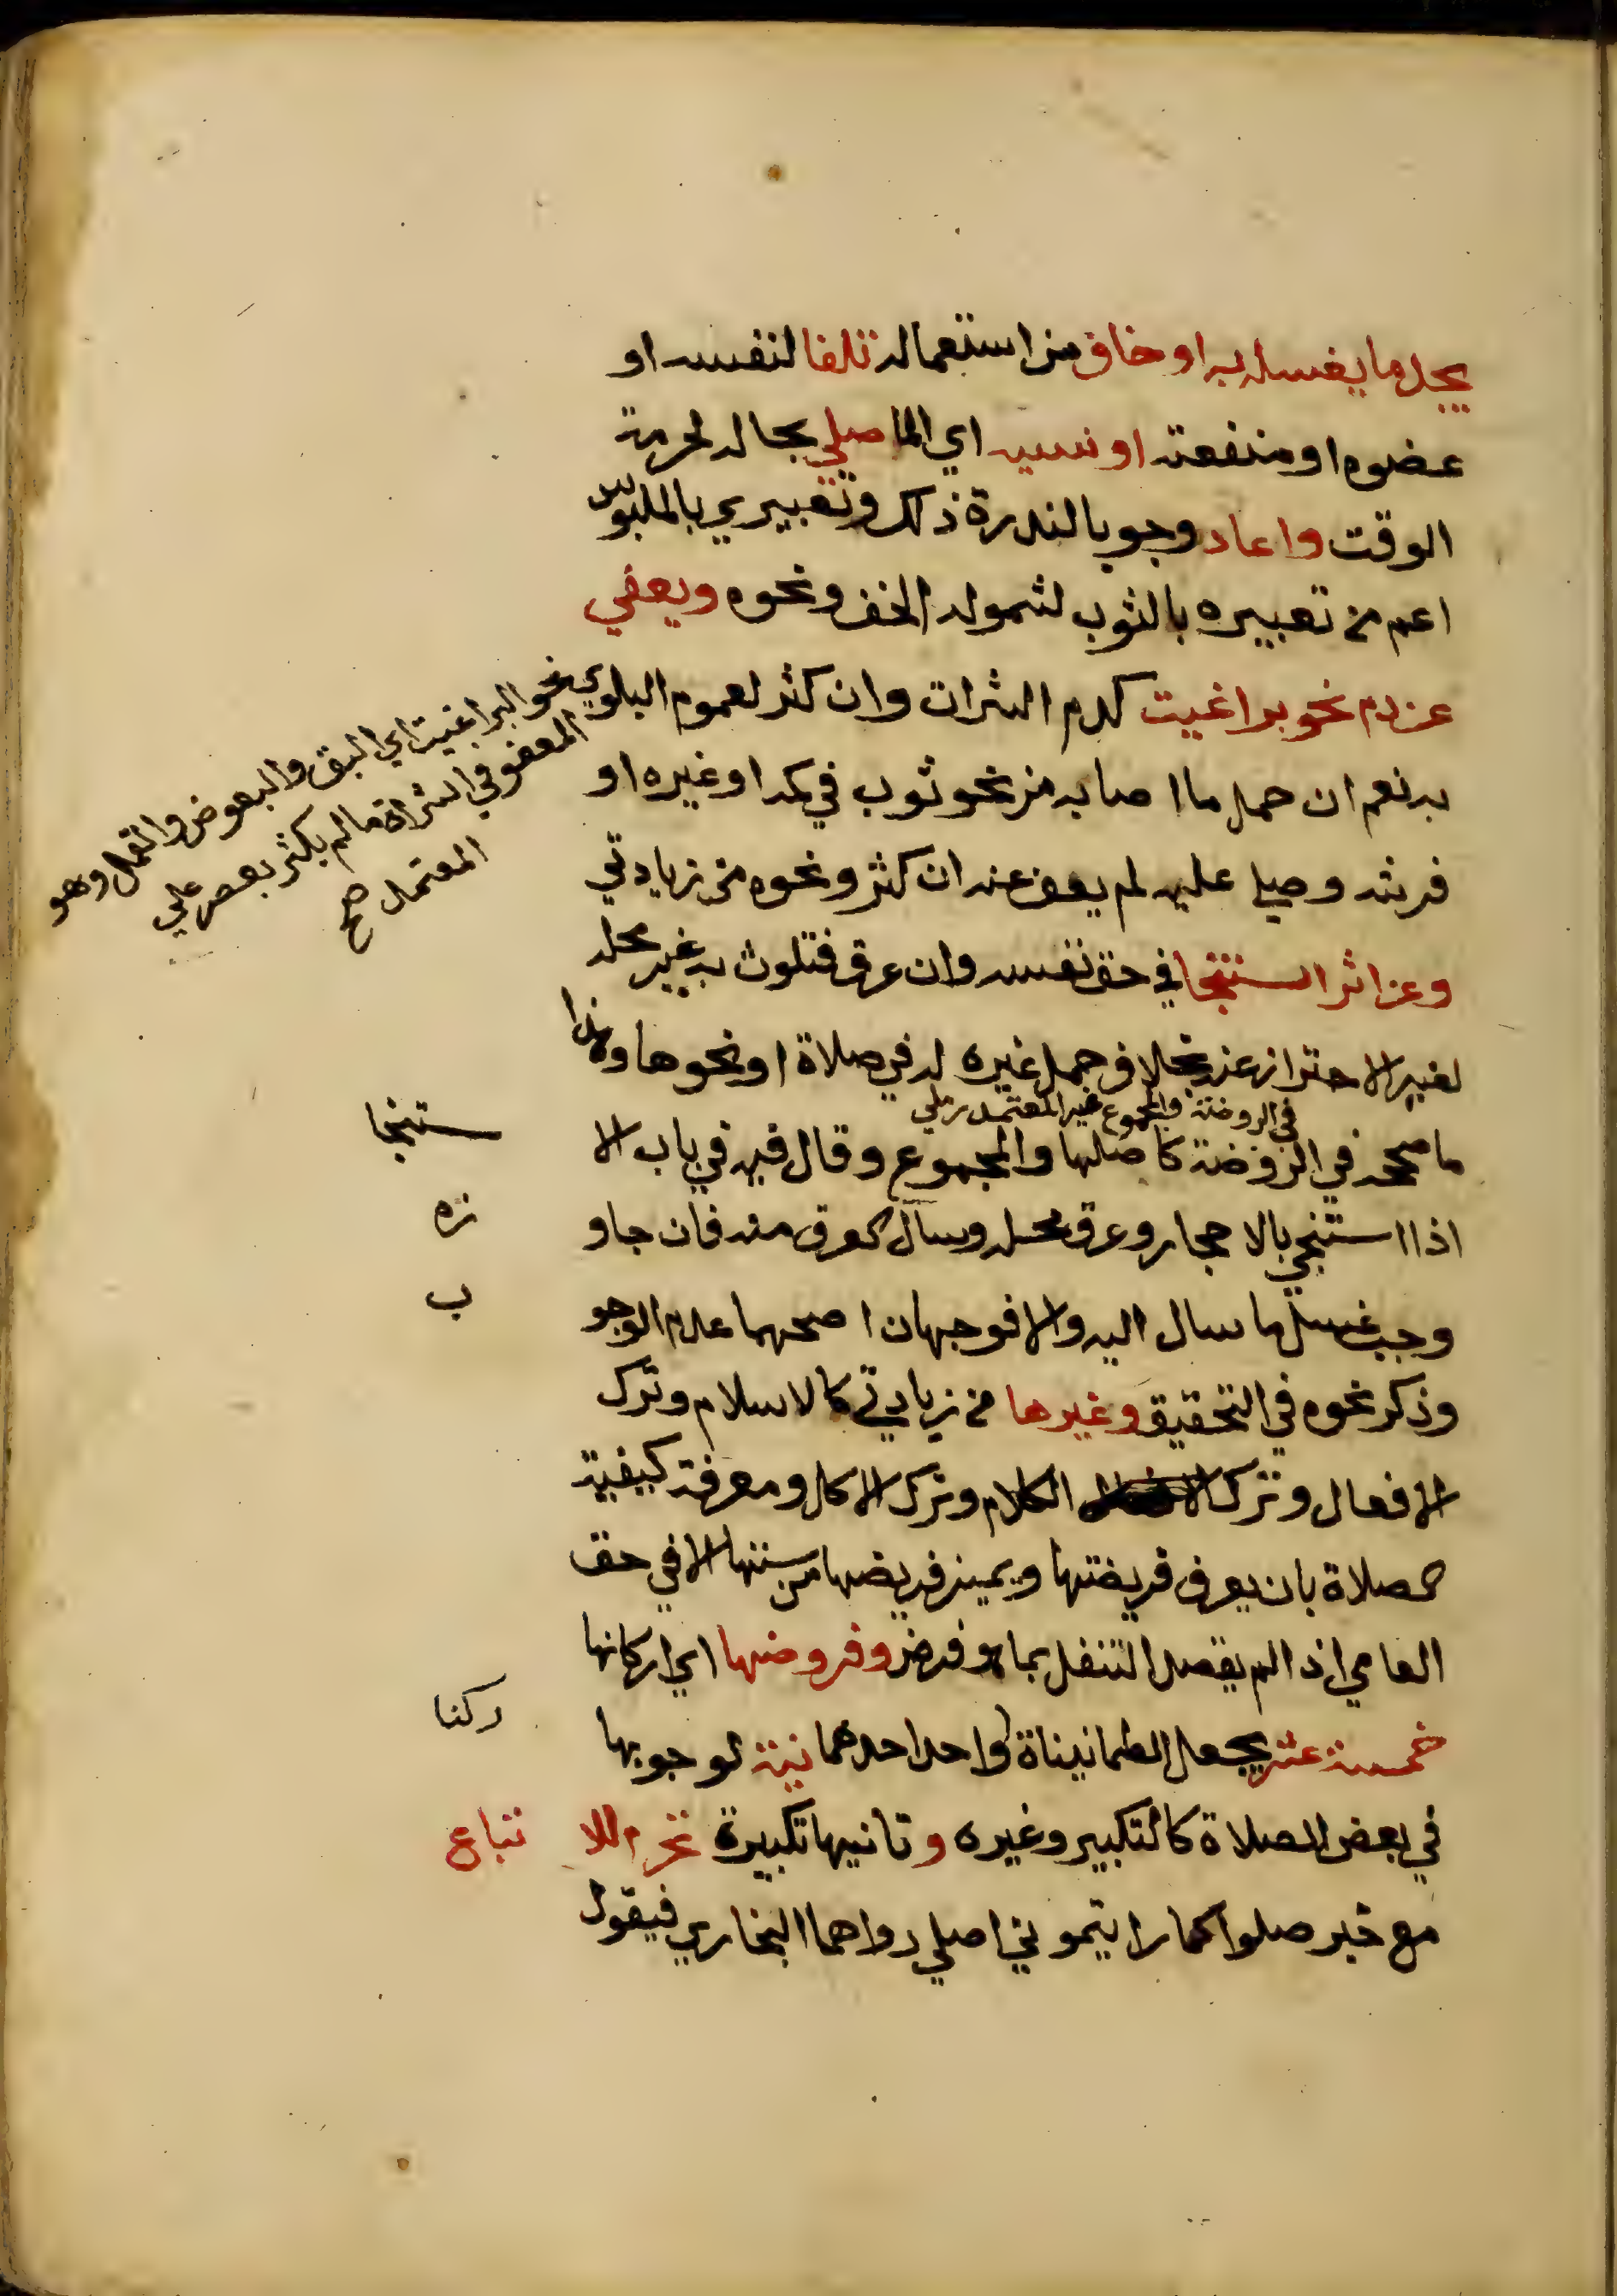 يجد ما يغسله به او خاف من استعماله تلفا لنفسه او
عضوه او منفعته او نسيه اي الما صلي بحاله لحرمة
الوقت واعاد وجوبا لندرة ذلك وتعبيري بالملبوس
اعم من تعبيره بالثوب لشموله الخف ونحوه ويعفي
عن دم نحو براغيت كدم البثرات وان كثر لعموم البلوي
به نعم ان حمل ما اصابه من نحو ثوب في كمه او غيره او
فرشه وصلي عليه لم يعف عنه ان كثر ونحوه من زيادتي
وعن اثر استنجا في حق نفسه وان عرق فتلوث به غير محله
لغير الاحتراز عنه بخلاف حمل غيره له في صلاة او نحوها وهذا
في الروضة والمجموع غير المعتمد رملي
ما صححه في الروضة كاصلها والمجموع وقال فيه في باب الا ستنجا
اذا استنجي بالاحجار وعرق محله وسال العرق منه فان جاو زه
وجب غسل ما سال اليه والا فوجهان اصحهما عدم الوجو ب
وذكر نحوه في التحقيق وغيرها من زيادتي كالاسلام وترك
الافعال وترك الكلام وترك الاكل ومعرفة كيفية
الصلاة بان يعرف فريضتها ويميز فريضها من سننها الا في حق
العامي اذا لم يقصد التنفل بما هو فرض وفروضها اي اركانها
خمسة عشر بجعل الطمانيناة واحدا احدهما نية لوجوبها ركنا
في بعض الصلاة كالتكبير وغيره و ثانيها تكبيرة تحرم للا تباع
مع خبر صلوا كما رايتموني اصلي رواهما البخاري فيقول
نحو البراغيت اي البق والبعوض والقمل وهو
المعفو في البثراة ما لم يكثر بعصر علي
المعتمد صح